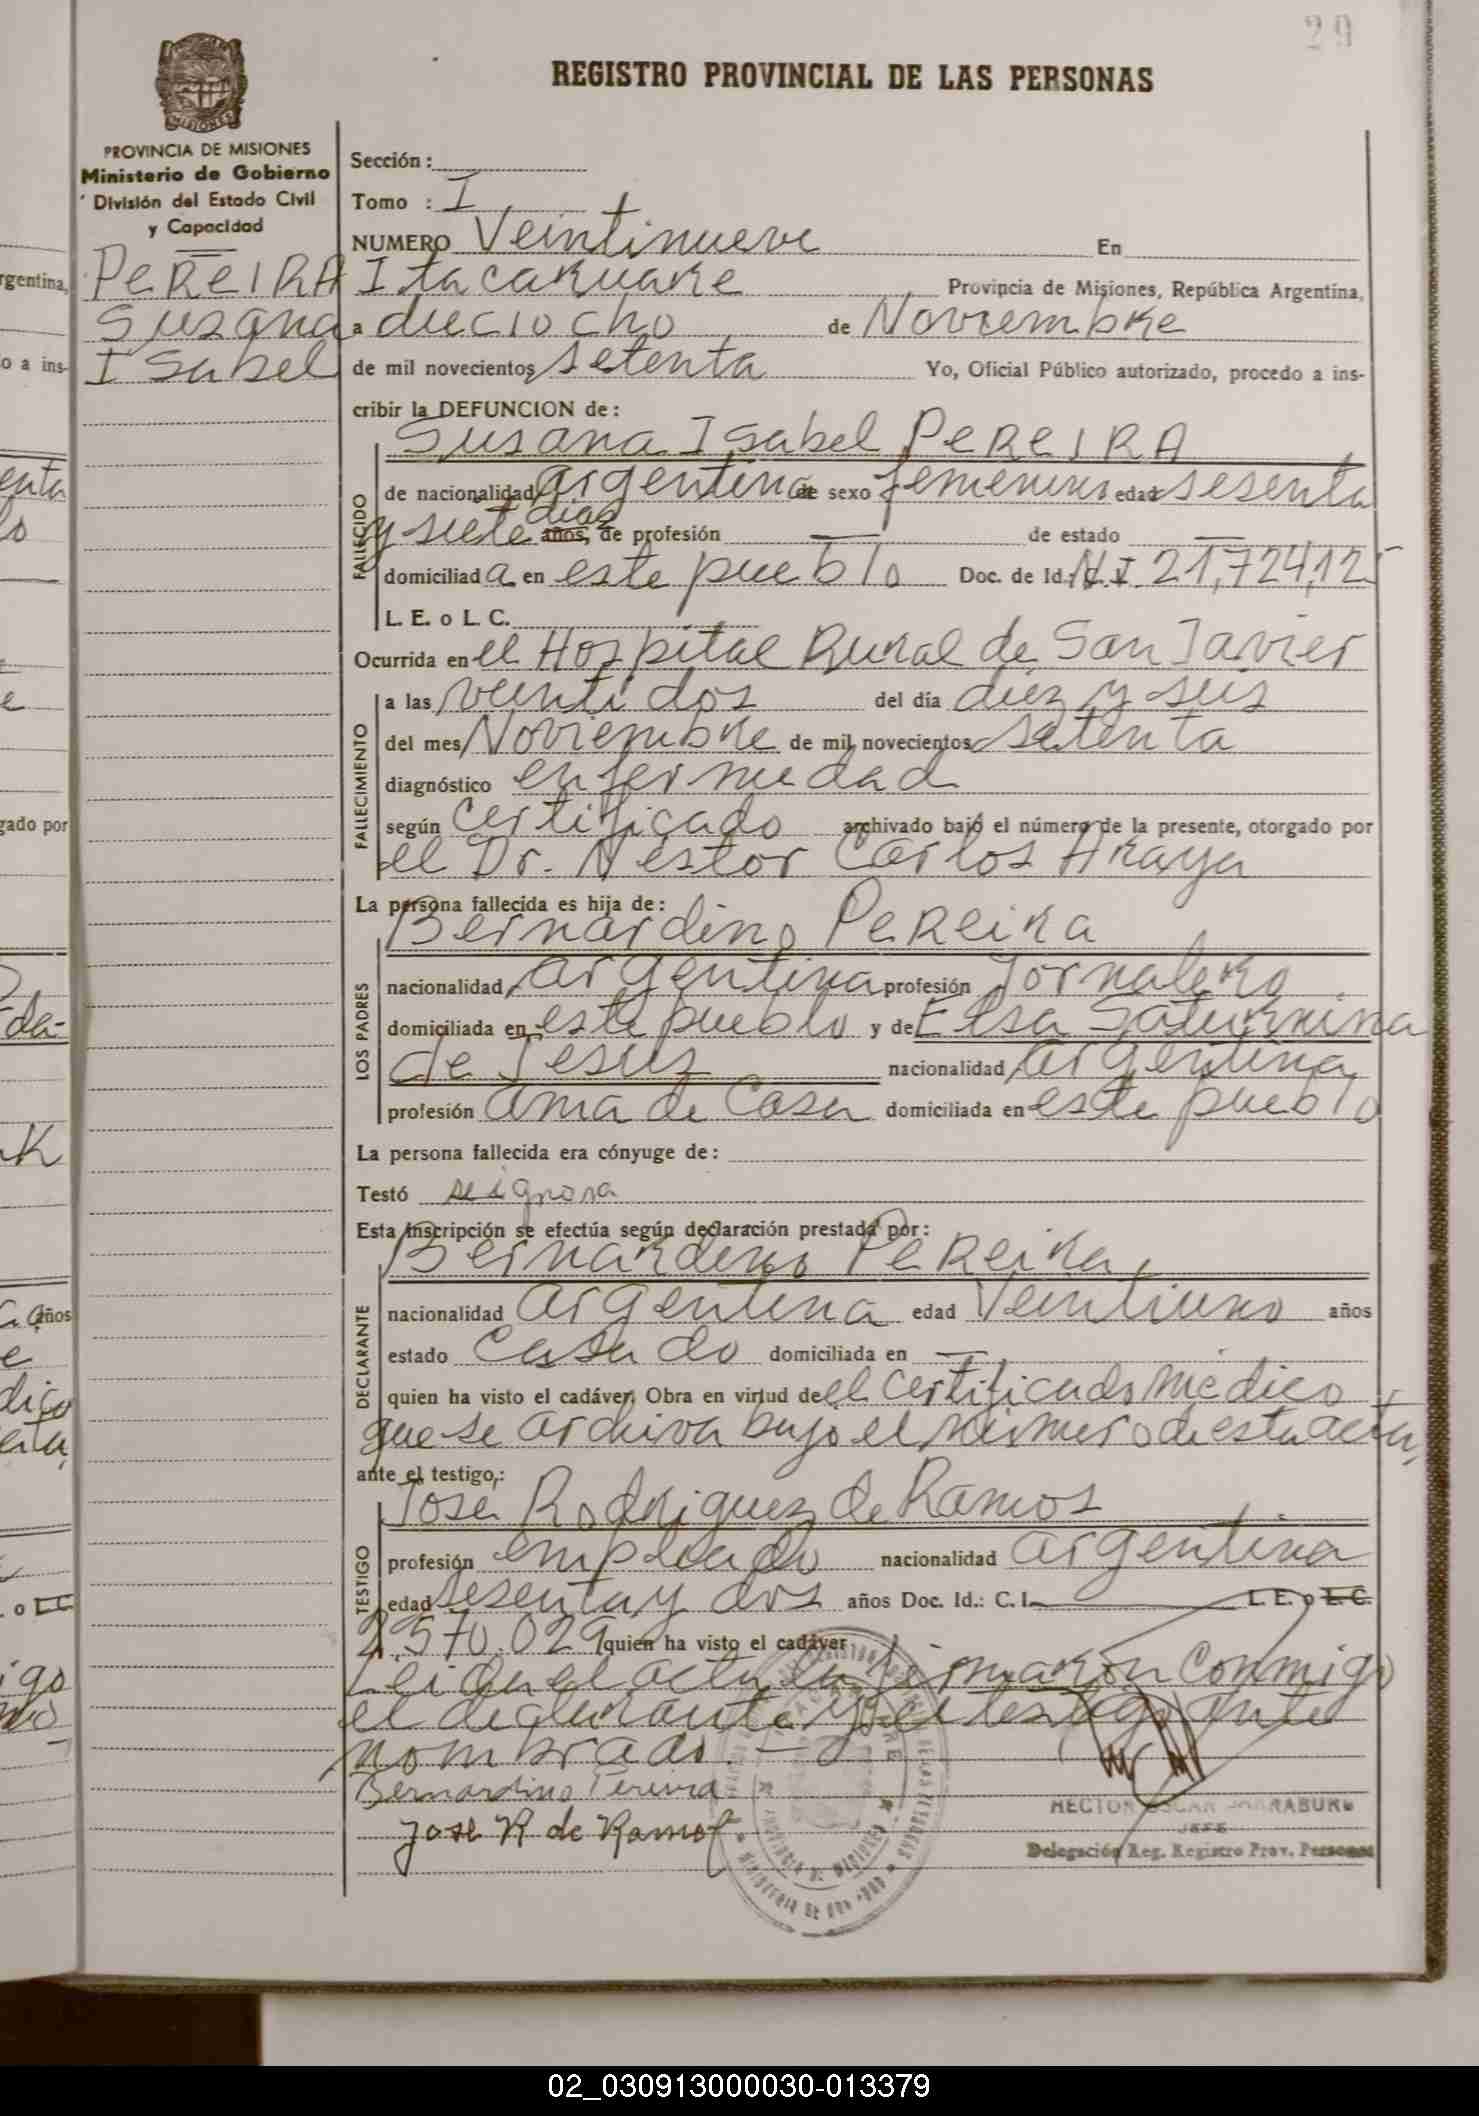 29
REGISTRO PROVINCIAL DE LAS PERSONAS
MISIONES
PROVINCIA DE MISIONES
Ministerio de Gobierno
División del Estado Civil
y Capacidad
PEREIRA
Susana
Isabel
Sección :
Tomo : I
NUMERO Veintinueve En
Itacaruare Provincia de Misiones, República Argentina,
a dieciocho de Noviembre
de mil novecientos setenta Yo, Oficial Público autorizado, procedo a ins-
cribir la DEFUNCION de :
Susana Isabel PEREIRA
FALLECIDO
de nacionalidad argentina de sexo femenino edad sesenta
y siete años, dias de profesión — de estado —
domiciliad a en este pueblo Doc. de Id. N I 21,724,125
L. E. o L. C.
Ocurrida en el Hospital Rural de San Javier
FALLECIMIENTO
a las veinti dos del día diez y seis
del mes Noviembre de mil novecientos setenta
diagnóstico enfermedad
según certificado archivado bajo el número de la presente, otorgado por
el Dr. Nestor Carlos Araya
La persona fallecida es hija de :
Bernardino Pereira
LOS PADRES
nacionalidad argentina profesión Jornalero
domiciliada en este pueblo y de Elsa Saturnina
de Jesus nacionalidad argentina
profesión ama de Casa domiciliada en este pueblo
La persona fallecida era cónyuge de :
Testó se ignora
Esta inscripción se efectúa según declaración prestada por :
Bernardino Pereira,
DECLARANTE
nacionalidad argentina edad Veintiuno años
estado Casado domiciliada en —
quien ha visto el cadáver. Obra en virtud de el certificado medico
que se archiva bajo el número de esta acta,
ante el testigo,:
José Rodriguez de Ramos
TESTIGO
profesión empleado nacionalidad argentina
edad sesenta y dos años Doc. Id.: C. I. L. E. o L. C.
2,570.029 quien ha visto el cadáver
Leida el acta la firmaron conmigo
el declarante y el testigo ante
nombrado. —
Bernardino Pereira
José R de Ramos
HECTOR OSCAR
JEFE
Delegación Reg. Registro Prov. Personas
02_030913000030-013379